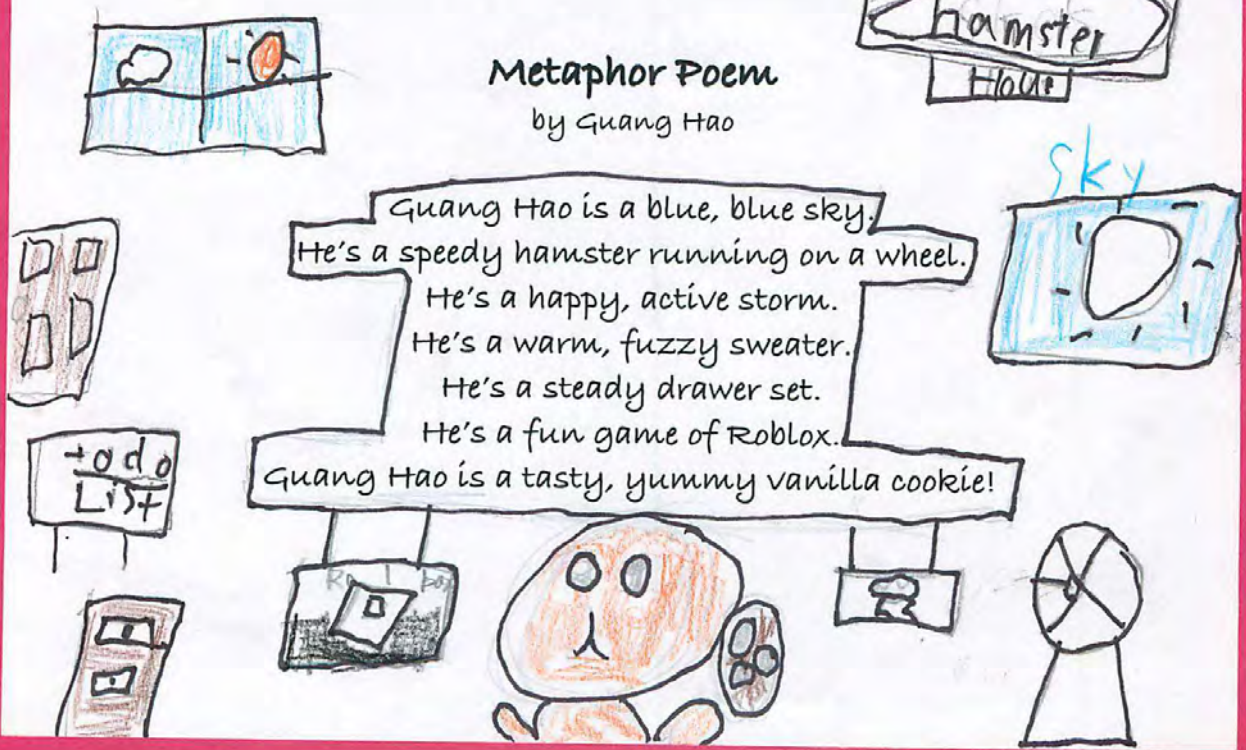 hamster
Metaphor Poem
by Guang Hao
sky
Guang Hao is a blue, blue sky.
He's a speedy hamster running on a wheel.
He's a happy, active storm.
He's a warm, fuzzy sweater.
He's a steady drawer set.
He's a fun game of Roblox.
Guang Hao is a tasty, yummy vanilla cookie!
todo
List